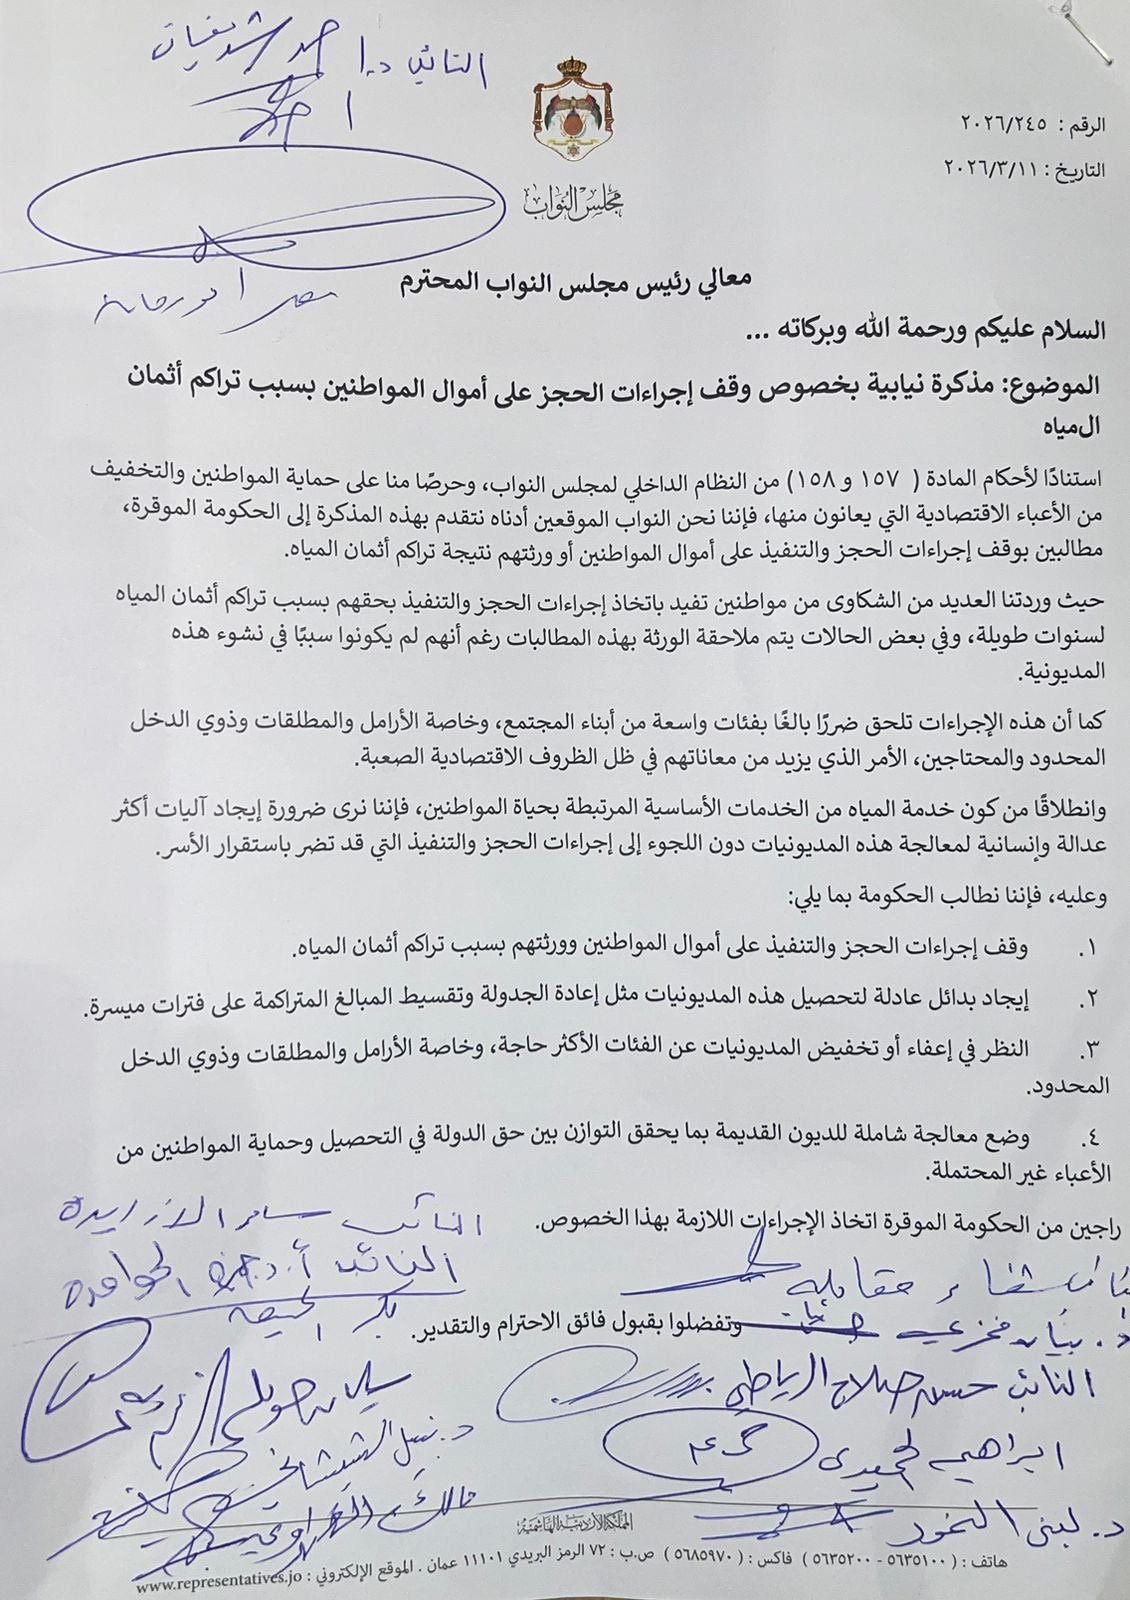 النائب د. احمد الشديفات
الرقم : ٢٠٢٦/٢٤٥
التاريخ : ٢٠٢٦/٣/١١
مجلس النواب
معالي رئيس مجلس النواب المحترم
السلام عليكم ورحمة الله وبركاته ...
الموضوع: مذكرة نيابية بخصوص وقف إجراءات الحجز على أموال المواطنين بسبب تراكم أثمان
المياه
استنادًا لأحكام المادة ( ١٥٧ و ١٥٨) من النظام الداخلي لمجلس النواب، وحرصًا منا على حماية المواطنين والتخفيف
من الأعباء الاقتصادية التي يعانون منها، فإننا نحن النواب الموقعين أدناه نتقدم بهذه المذكرة إلى الحكومة الموقرة،
مطالبين بوقف إجراءات الحجز والتنفيذ على أموال المواطنين أو ورثتهم نتيجة تراكم أثمان المياه.
حيث وردتنا العديد من الشكاوى من مواطنين تفيد باتخاذ إجراءات الحجز والتنفيذ بحقهم بسبب تراكم أثمان المياه
لسنوات طويلة، وفي بعض الحالات يتم ملاحقة الورثة بهذه المطالبات رغم أنهم لم يكونوا سببًا في نشوء هذه
المديونية.
كما أن هذه الإجراءات تلحق ضررًا بالغًا بفئات واسعة من أبناء المجتمع، وخاصة الأرامل والمطلقات وذوي الدخل
المحدود والمحتاجين، الأمر الذي يزيد من معاناتهم في ظل الظروف الاقتصادية الصعبة.
وانطلاقًا من كون خدمة المياه من الخدمات الأساسية المرتبطة بحياة المواطنين، فإننا نرى ضرورة إيجاد آليات أكثر
عدالة وإنسانية لمعالجة هذه المديونيات دون اللجوء إلى إجراءات الحجز والتنفيذ التي قد تضر باستقرار الأسر.
وعليه، فإننا نطالب الحكومة بما يلي:
١. وقف إجراءات الحجز والتنفيذ على أموال المواطنين وورثتهم بسبب تراكم أثمان المياه.
٢. إيجاد بدائل عادلة لتحصيل هذه المديونيات مثل إعادة الجدولة وتقسيط المبالغ المتراكمة على فترات ميسرة.
٣. النظر في إعفاء أو تخفيض المديونيات عن الفئات الأكثر حاجة، وخاصة الأرامل والمطلقات وذوي الدخل
المحدود.
٤. وضع معالجة شاملة للديون القديمة بما يحقق التوازن بين حق الدولة في التحصيل وحماية المواطنين من
الأعباء غير المحتملة.
راجين من الحكومة الموقرة اتخاذ الإجراءات اللازمة بهذا الخصوص.
النائب سامر الازايدة
النائب أ. د. حمزة الحوامدة
شفاء مقابلة
د. بيان فخري
وتفضلوا بقبول فائق الاحترام والتقدير.
النائب حسن صلاح الرياطي
د. نبيل الشيشاني
ابراهيم الحميدي
مالك
د. لبنى النمور
المملكة الأردنية الهاشمية
هاتف : ( ٥٦٣٥١٠٠ - ٥٦٣٥٢٠٠ ) فاكس : ( ٥٦٨٥٩٧٠ ) ص.ب : ٧٢ الرمز البريدي ١١١٠١ عمان . الموقع الإلكتروني : www.representatives.jo